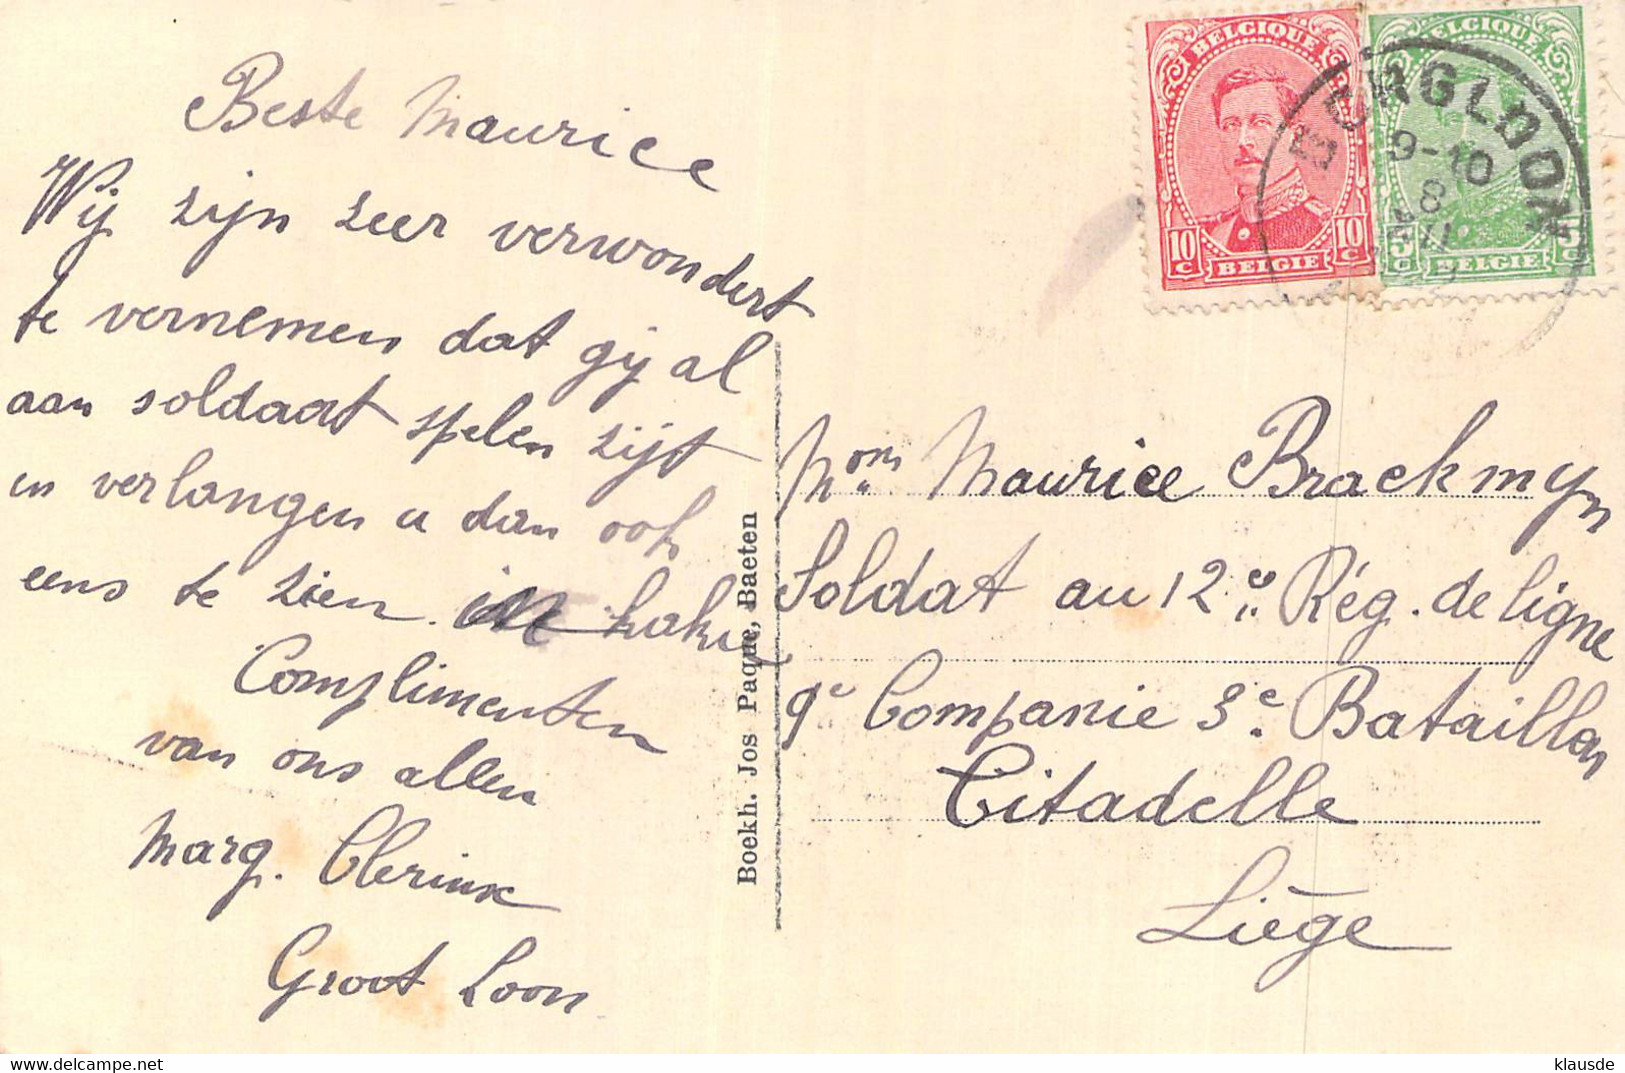 Beste Maurice
Wij zijn zeer verwondert
te vernemen dat gij al
aan soldaat spelen zijt
en verlangen u dan ook
eens te zien in kaki
Complimenten
van ons allen
Marg. Clerinx
Groot Loon
Boekh. Jos Paque, Baeten
BELGIQUE
10 C
10 C
BELGIE
BELGIQUE
5 C
5 C
BELGIE
BORGLOON
9-10
8
Mons Maurice Brackmyn
Soldat au 12e Rég. de ligne
9e Companie 3e Bataillon
Citadelle
Liège
klausde